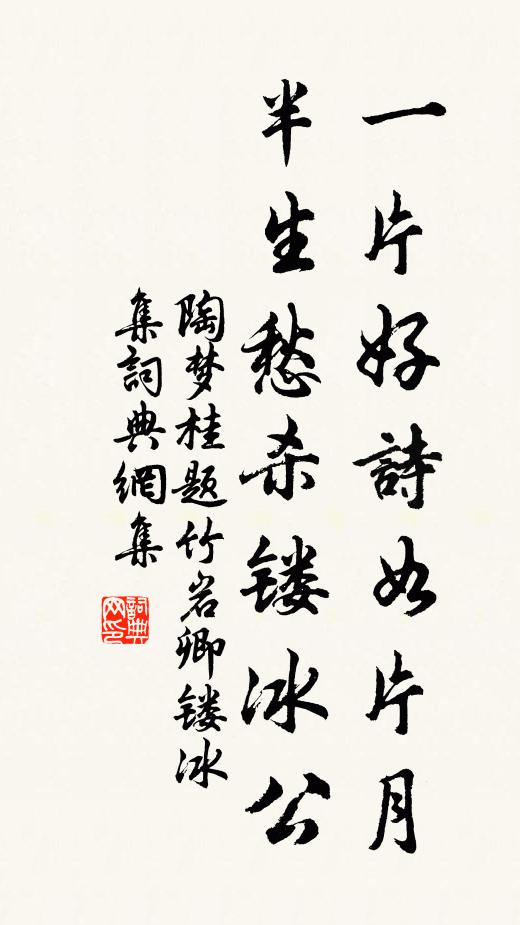 一片好詩如片月
半生愁杀镂冰公
陶梦桂题竹岩卿镂冰
集詞典網集
詞典
网印